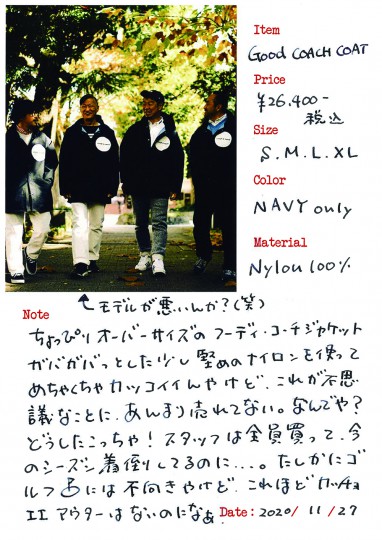 Item
GOOD COACH COAT
Price
¥26,400-
税込
Size
S. M. L. XL
Color
NAVY only
Material
Nylon 100%
モデルが悪いんか?(笑)
Note
ちょっぴりオーバーサイズのフーディ・コーチジャケット
ガバガバっとした少し堅めのナイロンを使って
めちゃくちゃカッコイイんやけど、これが不思
議なことに、あんまり売れてない。なんでや?
どうしたこっちゃ!スタッフは全員買って、今
のシーズン着倒してるのに...。たしかにゴ
ルフ
には不向きやけど、これほどカッチョ
エエアウターはないのになぁ
Date: 2020/11/27